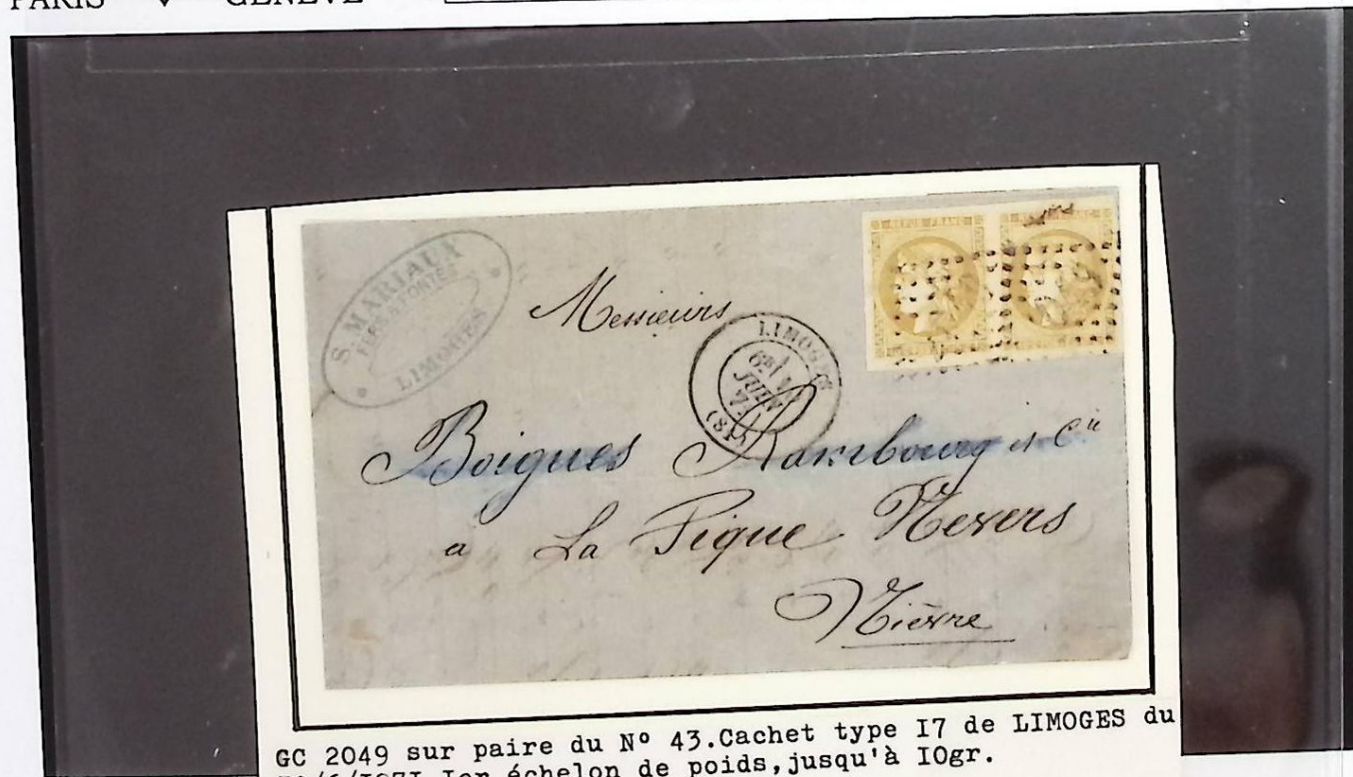 PARIS GENEVE
S. MARIAUX
FERS & FONTES
LIMOGES
REPUB FRANC
Messieurs
LIMOGES
6E
JUIN
71
(81)
Boigues Rambourg et Cie
a La Pique Nevers
Nièvre
GC 2049 sur paire du N° 43.Cachet type I7 de LIMOGES du
/6/I871 Ier échelon de poids,jusqu'à IOgr.